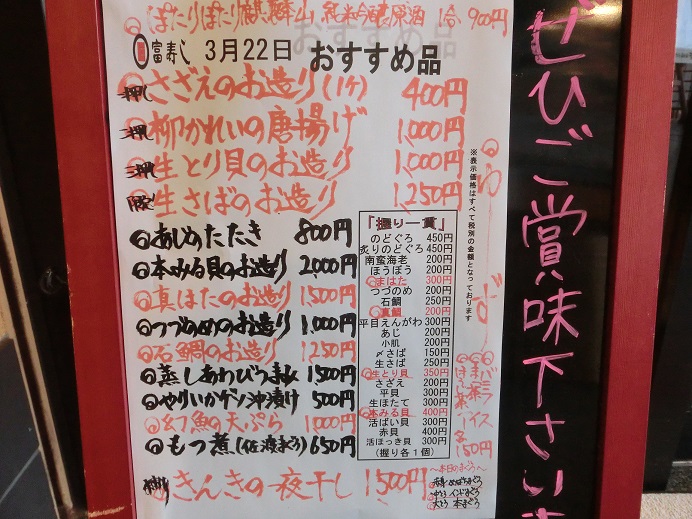 ぽたりぽたり麒麟山 純米吟醸原酒 1合 900円
富寿し 3月22日 おすすめ品
さざえのお造り(1ケ) 400円
柳かれいの唐揚げ 1,000円
生とり貝のお造り 1,000円
生さばのお造り 1,250円
あじのたたき 800円
本みる貝のお造り 2,000円
真はたのお造り 1,500円
つづのめのお造り 1,000円
石鯛のお造り 1,250円
蒸しあわびうま煮 1,500円
やりいかゲソ沖漬け 500円
幻魚の天ぷら 1,000円
もつ煮(佐渡まぐろ) 650円
きんきの一夜干し 1,500円
「握り一貫」
のどぐろ 450円
炙りのどぐろ 450円
南蛮海老 200円
ほうぼう 200円
まはた 300円
つづのめ 200円
石鯛 250円
真鯛 200円
平目えんがわ 300円
あじ 200円
小肌 200円
〆さば 150円
生さば 250円
生とり貝 350円
さざえ 200円
平貝 300円
生ほたて 300円
本みる貝 400円
活ばい貝 300円
赤貝 400円
活ほっき貝 300円
(握り各1個)
※表示価格はすべて税別の金額となっております
アイス
各150円
~本日のまぐろ~
赤身 めばちまぐろ
中とろ インドまぐろ
大とろ 本まぐろ
ぜひご賞味下さいま